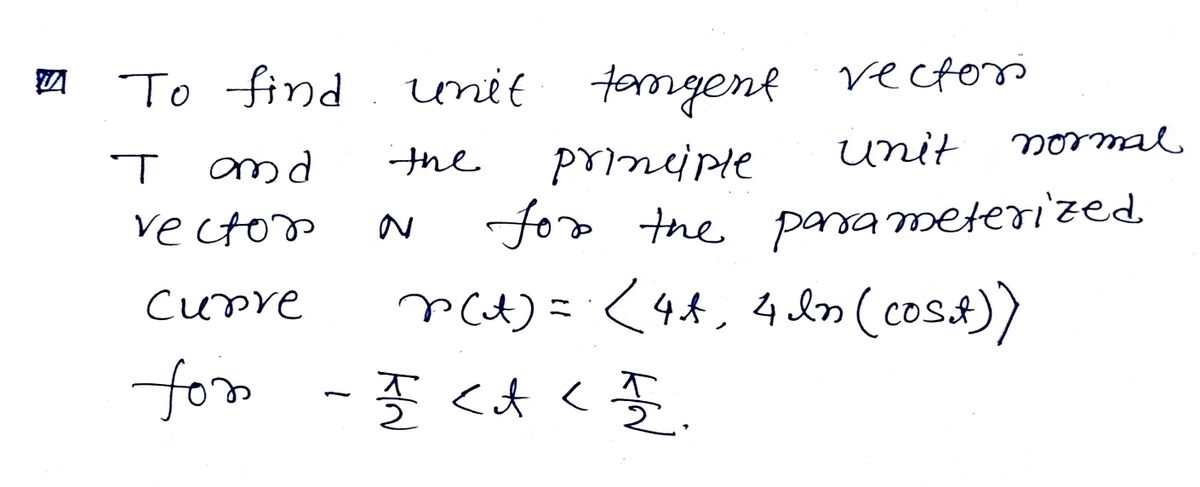 To find unit tangent vector
T and the principle unit normal
vector N for the parameterized
curve r(t) = ⟨4t, 4 ln(cost)⟩
for -π/2 < t < π/2.